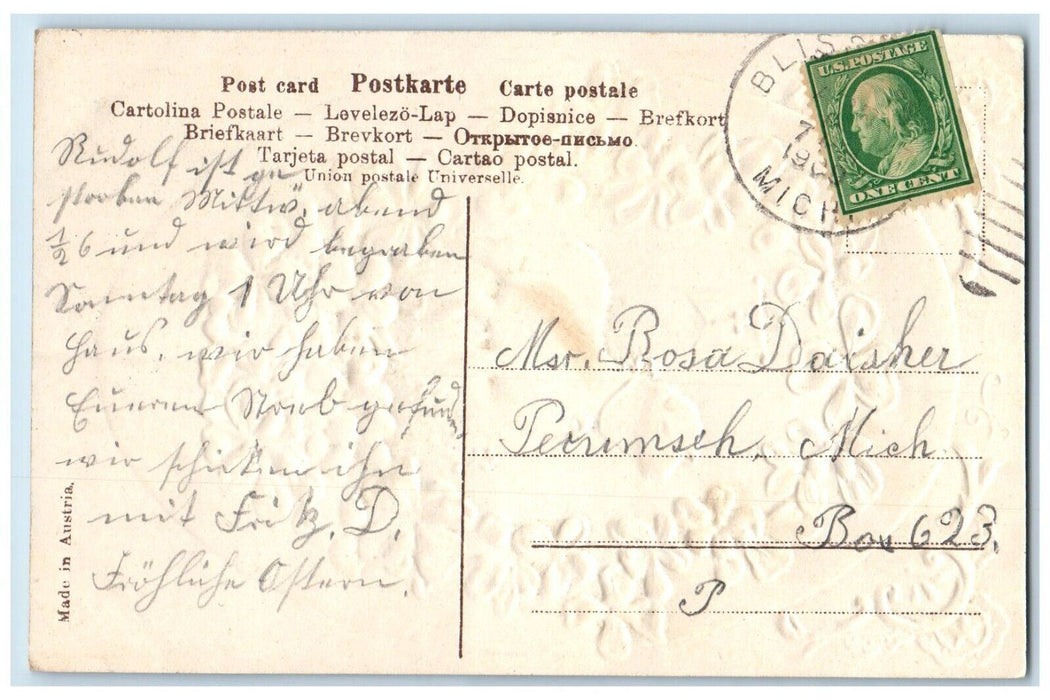 Post card Postkarte Carte postale
Cartolina Postale — Levelezö-Lap — Dopisnice — Brefkort
Briefkaart — Brevkort — Открытое-письмо.
Tarjeta postal — Cartao postal.
Union postale Universelle.
Rudolf ist ge
storben Mittw. abend
½6 und wird begraben
Sonntag 1 Uhr von
Haus, wir haben
Eueren Korb gefunden
wir schicken ihn
mit Fritz. D.
Fröhliche Ostern.
Made in Austria.
BLISS
7
19
MICH
U.S. POSTAGE
ONE CENT
Msr. Rosa Daisher
Tecumseh, Mich
Box 623.
P